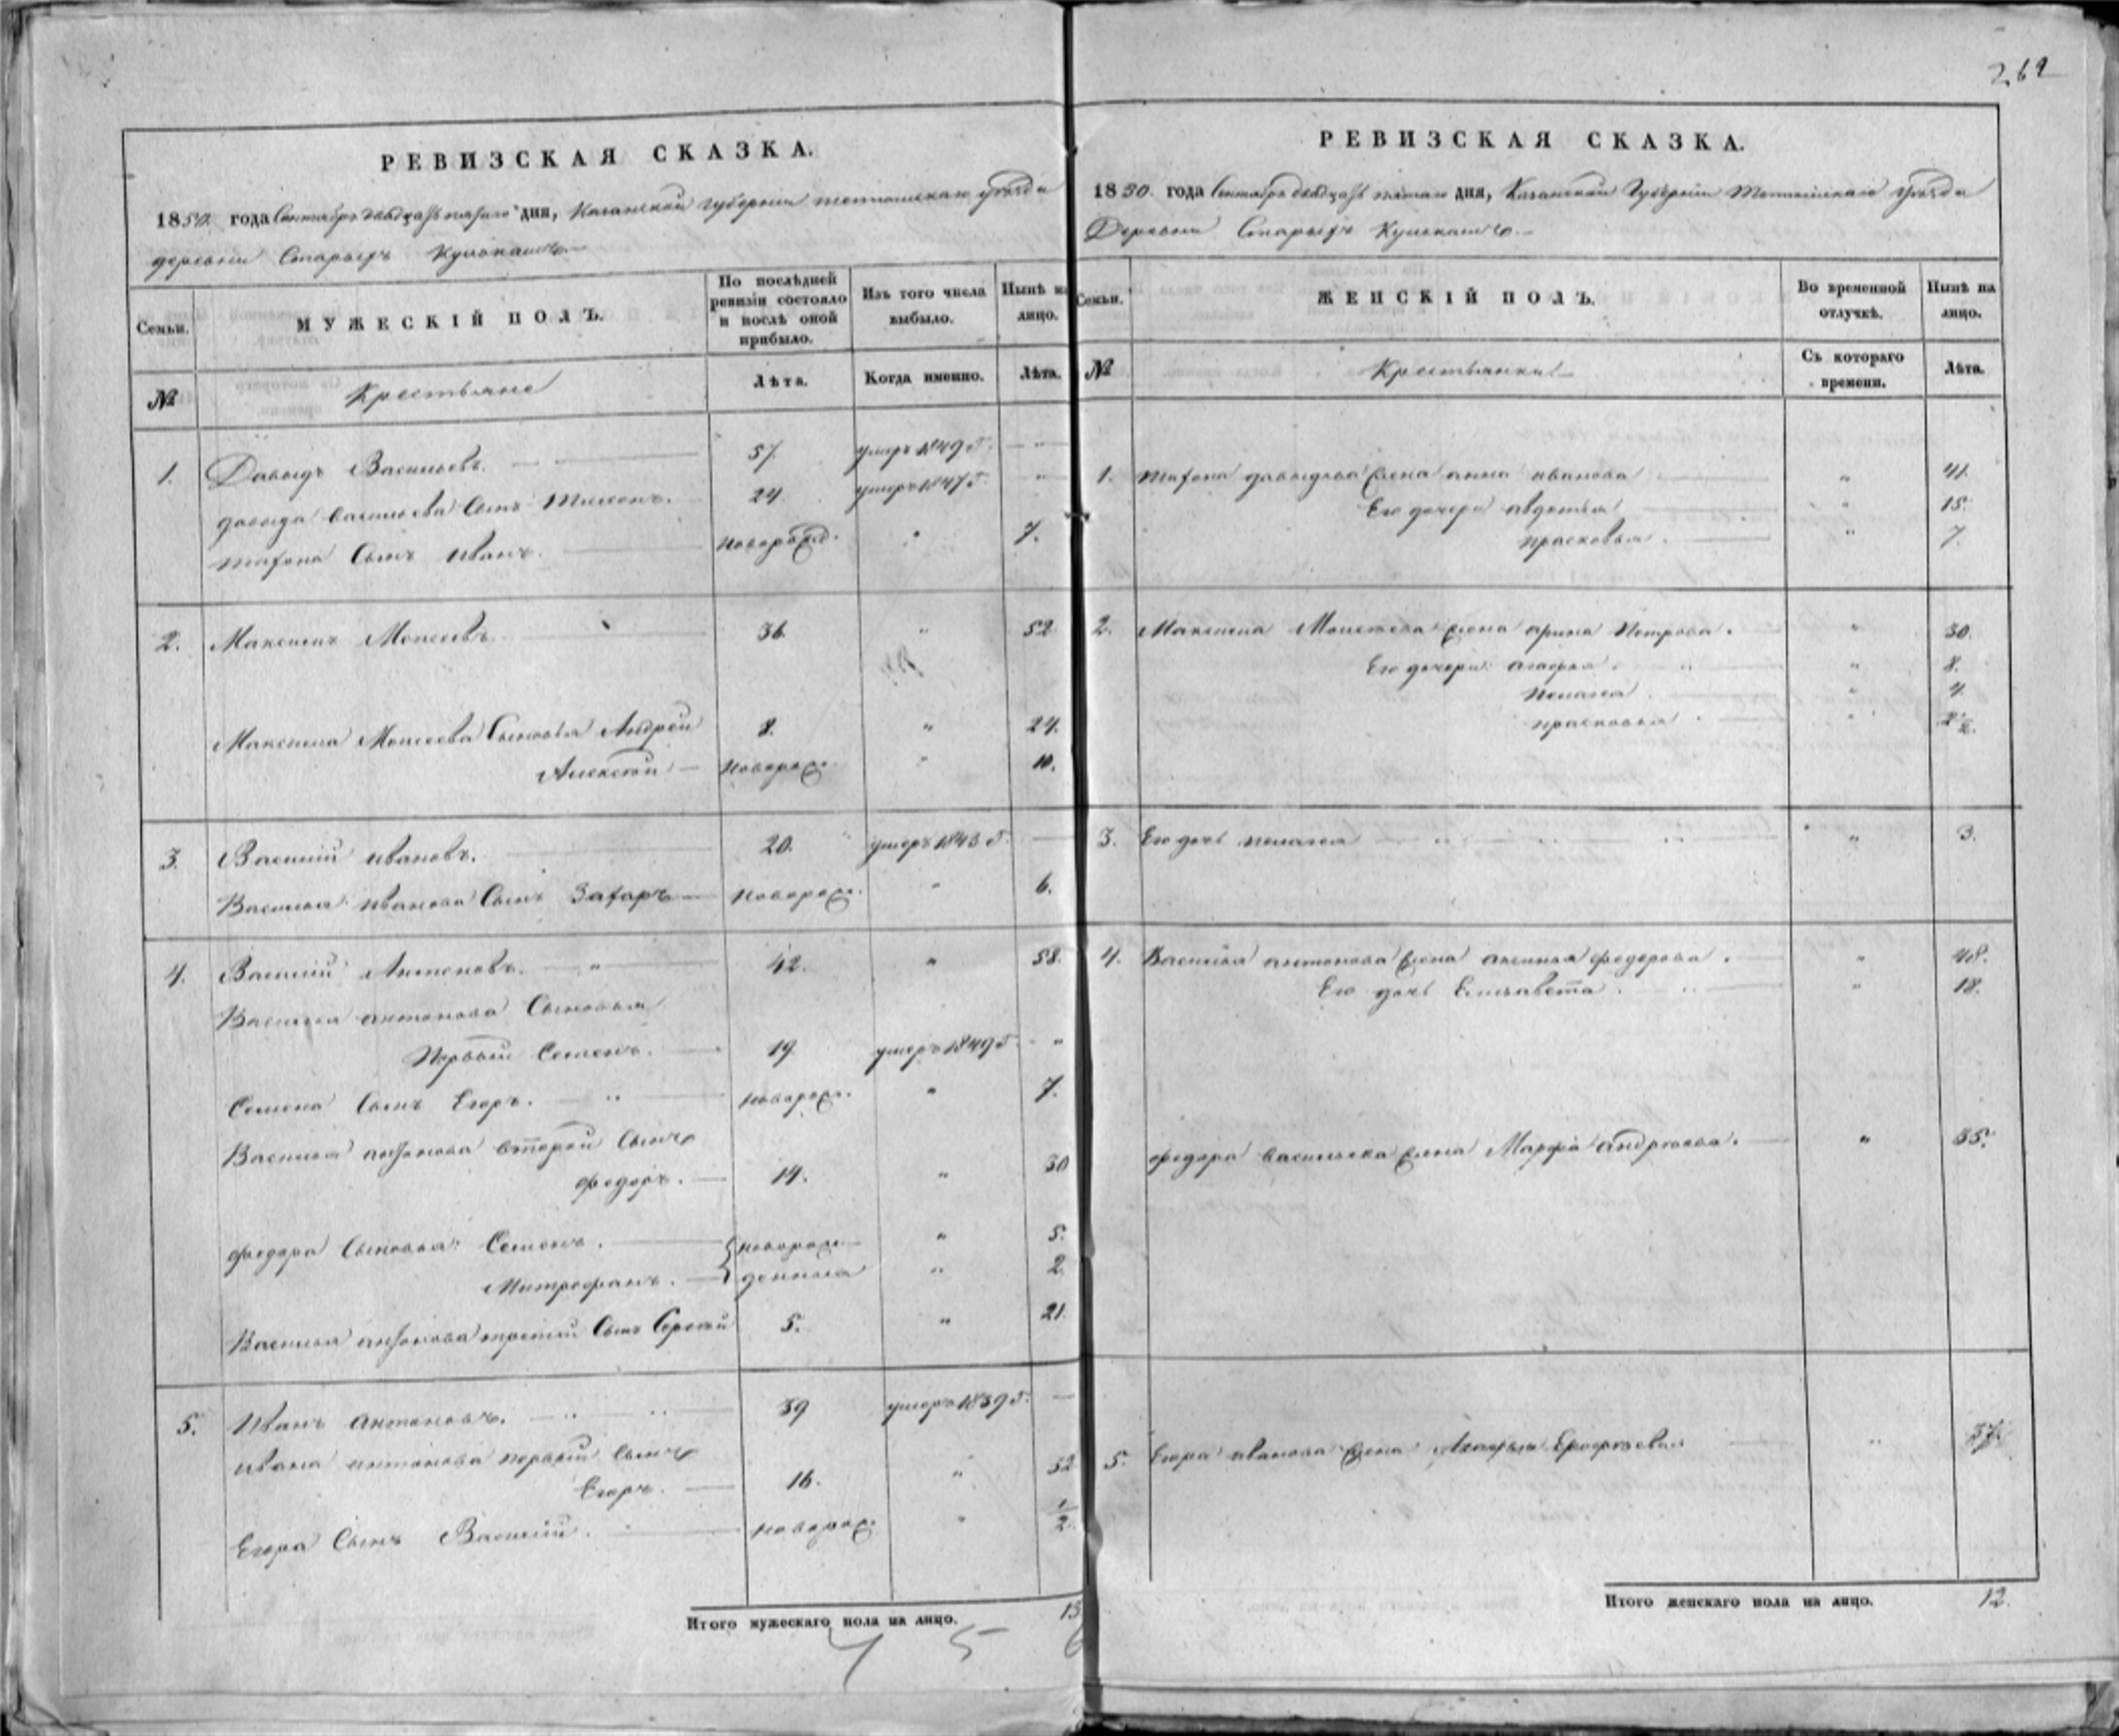 262
РЕВИЗСКАЯ СКАЗКА.
1850 года Сентября двадцать пятаго дня, Казанской губернии тетюшскаго уѣзда
деревни Старыхъ
Семьи. МУЖЕСКІЙ ПОЛЪ. По послѣдней ревизіи состояло и послѣ оной прибыло. Изъ того числа выбыло. Нынѣ на лицо.
№ Крестьяне Лѣта. Когда именно. Лѣта.
1. Давыдъ Васильевъ. 57. умеръ 1849 г. — "
давыда васильева сынъ 24 умеръ 1847 г. "
сынъ иванъ. новорожд. " 7.
2. Максимъ Моисеевъ. 36 " 52
Максима Моисеева Сыновья Андрей 8. " 24.
Алексѣй — новорож. " 10.
3. Василий ивановъ. 20. умеръ 1843 г. —
Василья иванова Сынъ Захаръ — новорож. " 6.
4. Василий Антоновъ. " 42. " 58.
Василья антонова Сыновья
Первый Семенъ. 19 умеръ 1849 г. "
Семена Сынъ Егоръ. новорож. " 7.
Василья антонова второй сынъ
федоръ. 14. " 30
федора Сыновья: Семенъ. новорож- " 5.
Митрофанъ. денныя " 2.
Василья антонова третий Сынъ Сергѣй 5. " 21.
5. Иванъ антоновъ. 39 умеръ 1839 г. —
ивана антонова первый сынъ
Егоръ. 16. " 32
Егора Сынъ Василий. новорож. " 1/2.
Итого мужескаго пола на лицо. 13
РЕВИЗСКАЯ СКАЗКА.
1850 года Сентября двадцать пятаго дня, Казанской Губернии Тетюшскаго уѣзда
Деревни Старыхъ
Семьи. ЖЕНСКІЙ ПОЛЪ. Во временной отлучкѣ. Нынѣ на лицо.
№ Крестьянки — Съ котораго времени. Лѣта.
1. давыдова жена анна иванова " 41.
Его дочери авдотья " 15.
прасковья. " 7.
2. Максима Моисеева жена арина Петрова. " 30.
Его дочери: агафья. " 8.
Пелагея " 4.
прасковья " 2 1/2.
3. Его дочь пелагея " 3.
4. Василья антонова жена федорова. " 48.
Его дочь Елизавета. " 18.
федора васильева жена Марфа андреева. " 35.
5. Егора иванова жена Агафья Ерофѣева " 37.
Итого женскаго пола на лицо. 12.